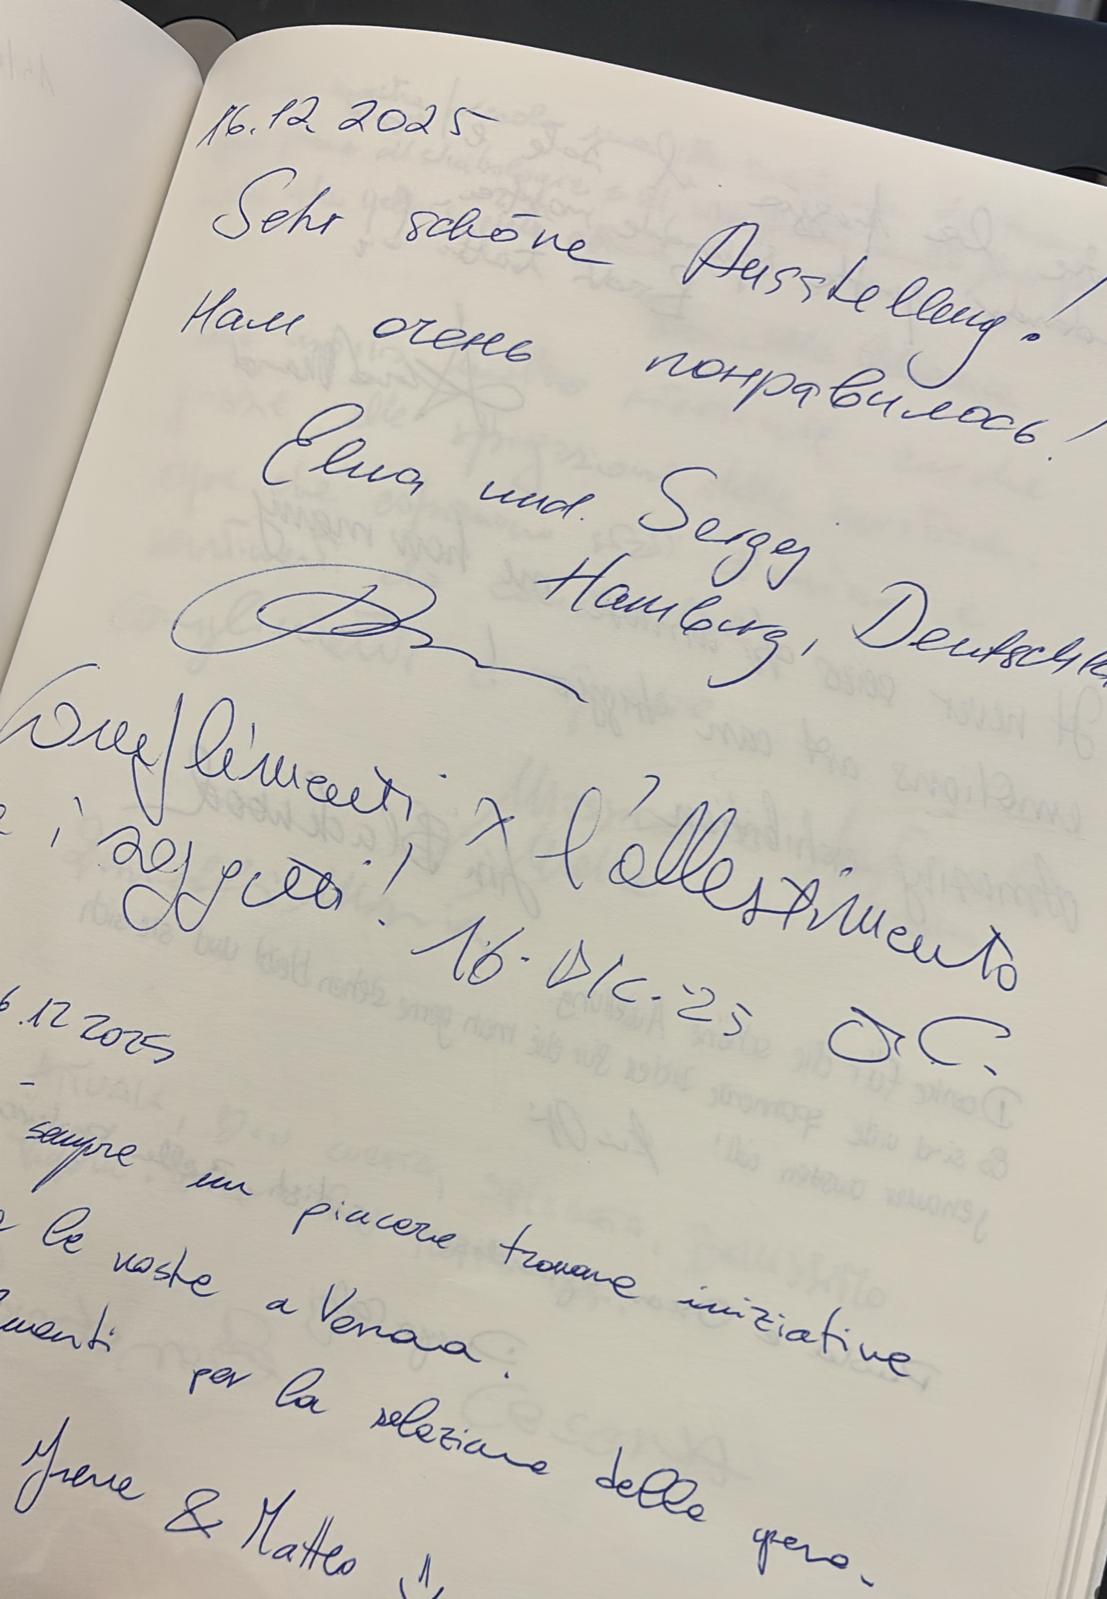 16.12.2025
Sehr schöne Ausstellung!
Нам очень понравилось!
Elena und Sergej
Hamburg, Deutschla
Complimenti x l'allestimento
e i soggetti! 16-DIC-25
6.12 2025
sempre un piacere trovare iniziative
le vostre a Verona.
menti per la selezione delle opere.
Irene & Matteo